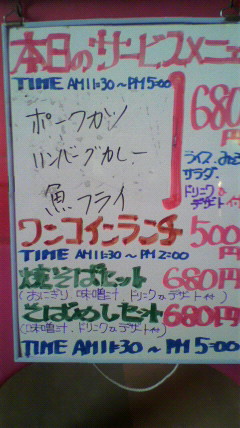 本日のサービスメニュ
TIME AM11:30~PM5:00
ポークカツ
ハンバーグカレー
魚フライ
680円
ライス、みそ
サラダ、
ドリンク&
デザート付
ワンコインランチ 500円
TIME AM11:30~PM2:00
焼そばセット 680円
(おにぎり 味噌汁 ドリンク&デザート付)
そばめしセット 680円
(味噌汁、ドリンク&デザート付)
TIME AM11:30 ~ PM 5:00